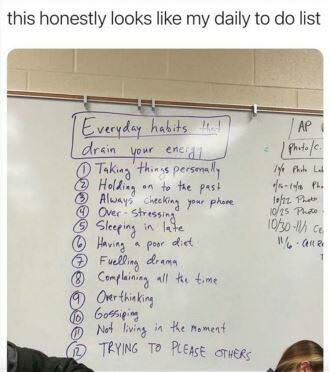 this honestly looks like my daily to do list
Everyday habits that
drain your energy
① Taking things personally
② Holding on to the past
③ Always checking your phone
④ Over-Stressing
⑤ Sleeping in late
⑥ Having a poor diet
⑦ Fuelling drama
⑧ Complaining all the time
⑨ Overthinking
⑩ Gossiping
⑪ Not living in the moment
⑫ TRYING TO PLEASE OTHERS
AP
Photo/C
Photo Lab
10/22 Photo
10/25 Photo
10/30-11/1
11/6 -